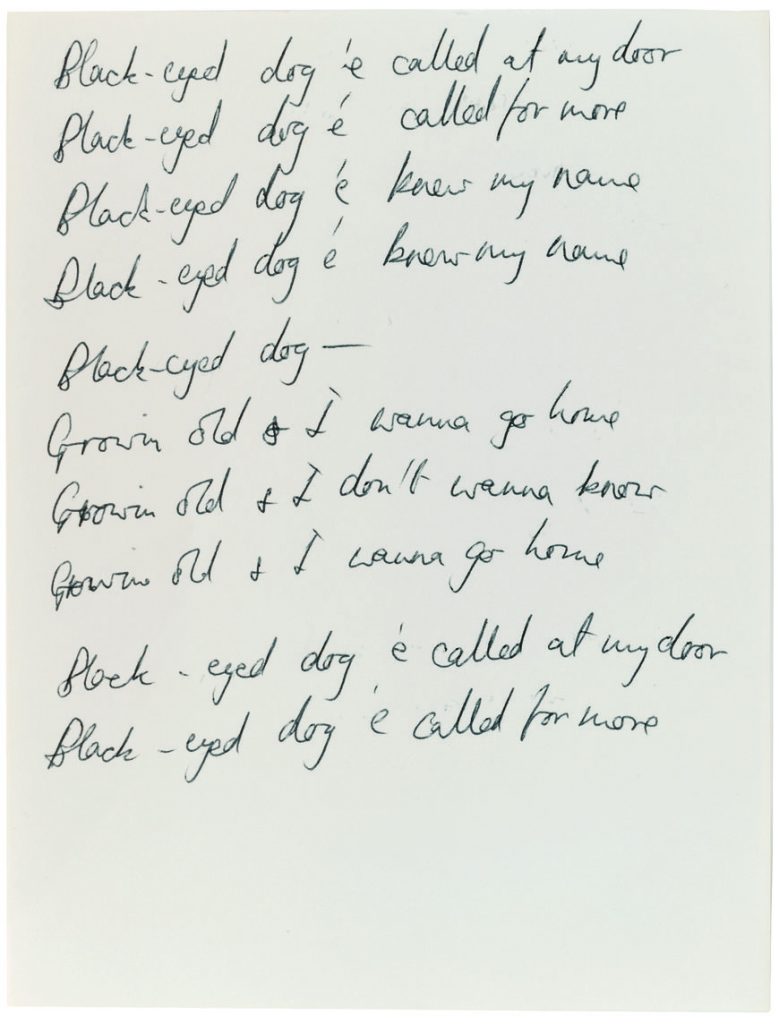 Black-eyed dog 'e called at my door
Black-eyed dog 'e called for more
Black-eyed dog 'e knew my name
Black-eyed dog 'e knew my name
Black-eyed dog —
Growin old & I wanna go home
Growin old & I don't wanna know
Growin old & I wanna go home
Black-eyed dog 'e called at my door
Black-eyed dog 'e called for more